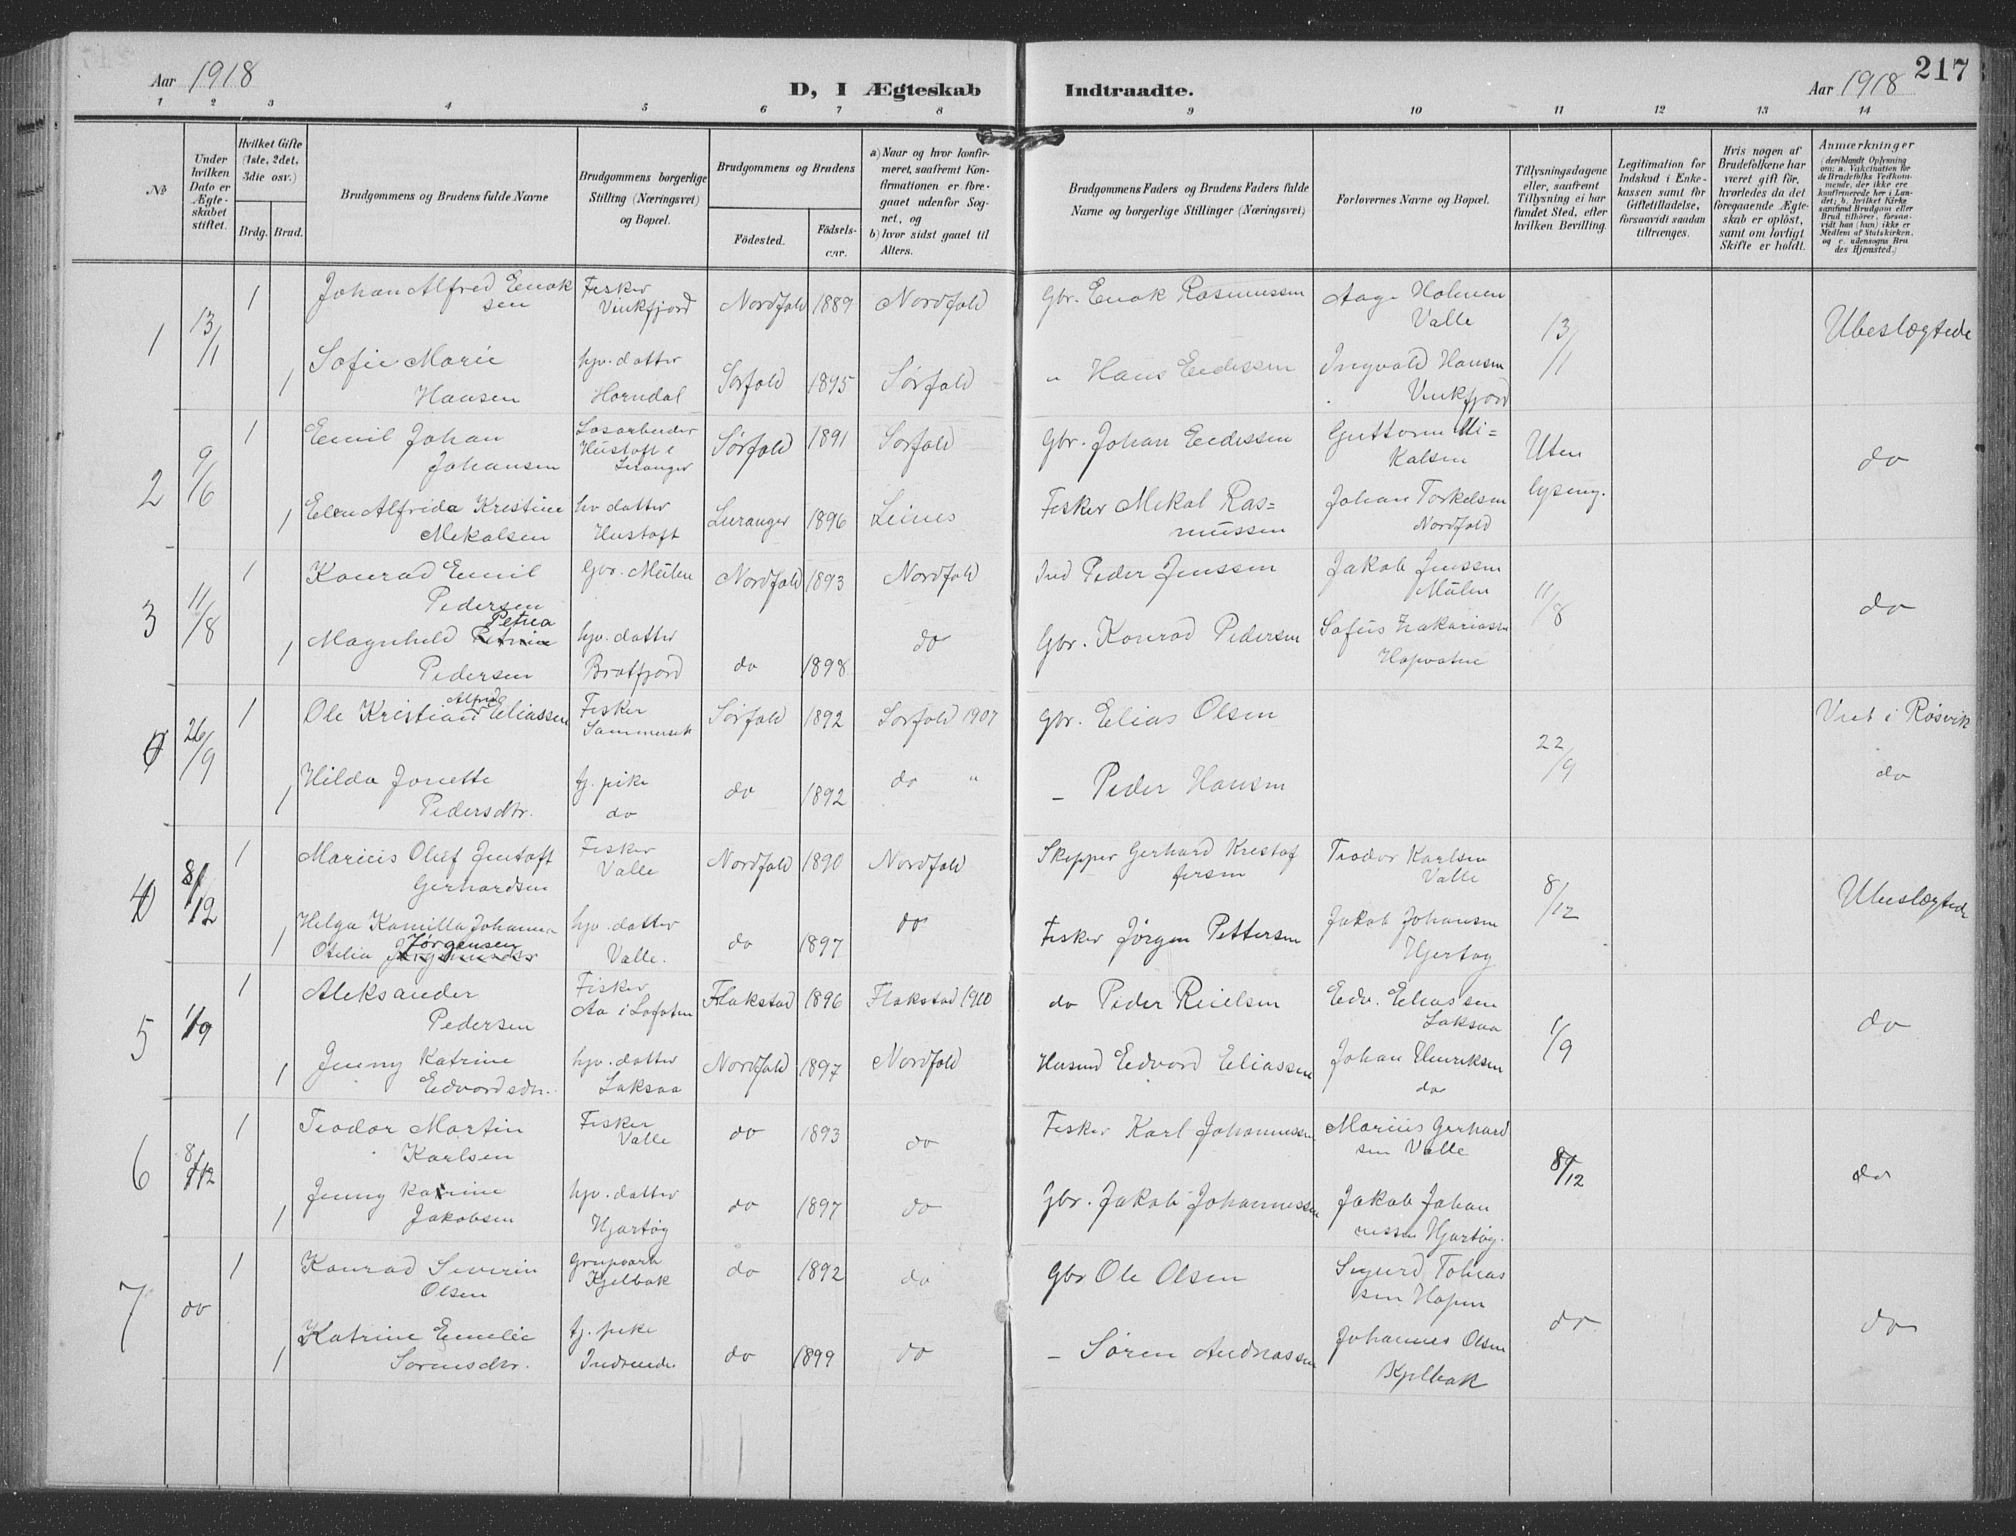 217
Aar 1918
D, I Ægteskab Indtraadte.
Aar 1918
1 2 3 4 5 6 7 8 9 10 11 12 13 14
No
Under hvilken Dato er Ægteskabet stiftet.
Hvilket Gifte (1ste, 2det, 3die osv.)
Brdg. Brud.
Brudgommens og Brudens fulde Navne
Brudgommens borgerlige Stilling (Næringsvei) og Bopæl.
Brudgommens og Brudens
Födested.
Födselsaar.
a) Naar og hvor konfirmeret, saafremt Konfirmationen er foregaaet udenfor Sognet, og
b) hvor sidst gaaet til Alters.
Brudgommens Faders og Brudens Faders fulde Navne og borgerlige Stillinger (Næringsvei)
Forlovernes Navne og Bopæl.
Tillysningsdagene eller, saafremt Tillysning ei har fundet Sted, efter hvilken Bevilling.
Legitimation for Indskud i Enkekassen samt for Giftetilladelse, forsaavidt saadan tiltrænges.
Hvis nogen af Brudefolkene har været gift för, hvorledes da det foregaaende Ægteskab er oplöst, samt om lovligt Skifte er holdt.
Anmærkninger
(deriblandt Oplysning om: a. Vakcination for de Brudefolks Vedkommende, der ikke ere konfirmerede her i Landet; b. hvilket Kirkesamfund Brudgom eller Brud tilhörer, forsaavidt han (hun) ikke er Medlem af Statskirken, og c. udensogns Brudes Hjemsted.)
1 13/1 1 Johan Alfred Enoksen Fisker Vinkfjord Nordfold 1889 Nordfold Gbr. Enok Rasmussen Aage Holmen Valle 13/1 Ubeslægtede
1 Sofie Marie Hansen hjv. datter Horndal Sørfold 1895 Sørfold " Hans Eedessen Ingvald Hansen Vinkfjord
2 9/6 1 Emil Johan Johansen Løsarbeider Hustoft i Leiranger Sørfold 1891 Sørfold Gbr. Johan Eedessen Guttorm Mikalsen Uten lysning. do
1 Elen Alfrida Kristine Mekalsen hv datter Hustoft Leiranger 1896 Leines Fisker Mekal Rasmussen Johan Torkelsen Nordfold
3 11/8 1 Konrad Emil Pedersen Gbr. Mulen Nordfold 1893 Nordfold Ind Peder Jenssen Jakob Jenssen Mulen 11/8 do
1 Magnhild Petrea Pedersen hjv. datter Bratfjord do 1898 do Gbr. Konrad Pedersen Sofus Zakariassen Hopvatne
0 26/9 1 Ole Kristian Alfred Eliassen Fisker Sommerset Sørfold 1892 Sørfold 1907 Gbr. Elias Olsen 22/9 Viet i Røsvik
1 Hilda Jonette Pedersdtr. tj. pike do do 1892 do " _ Peder Hansen do
4 8/12 1 Marius Oluf Jentoft Gerhardsen Fisker Valle Nordfold 1890 Nordfold Skipper Gerhard Kristoffersen Teodor Karlsen Valle 8/12 Ubeslægtede
1 Helga Kamilla Johanne Otelia Jørgensen hjv. datter Valle. do 1897 do Fisker Jørgen Pettersen Jakob Johansen Hjertøy
5 1/9 1 Aleksander Pedersen Fisker Aa i Lofoten Flakstad 1896 Flakstad 1910 do Peder Rielsen Edv. Eliassen Laksaa 1/9 do
1 Jenny Katrine Edvordsdtr. hjv. datter Laksaa Nordfold 1897 Nordfold Husmd Edvord Eliassen Johan Henriksen do
6 8/12 1 Teodor Martin Karlsen Fisker Valle do 1893 do Fisker Karl Johannessen Marius Gerhardsen Valle 8/12 do
1 Jenny Katrine Jakobsen hjv. datter Hjartøy do 1897 do Gbr. Jakob Johannessen Jakob Johannessen Hjartøy.
7 do 1 Konrad Severin Olsen Grupearb Kjelbak do 1892 do Gbr Ole Olsen Sigurd Tobiassen Hopen do do
1 Katrine Emelie Sørensdtr. tj. pike do 1899 do _ Søren Andreassen Johannes Olsen Kjelbak